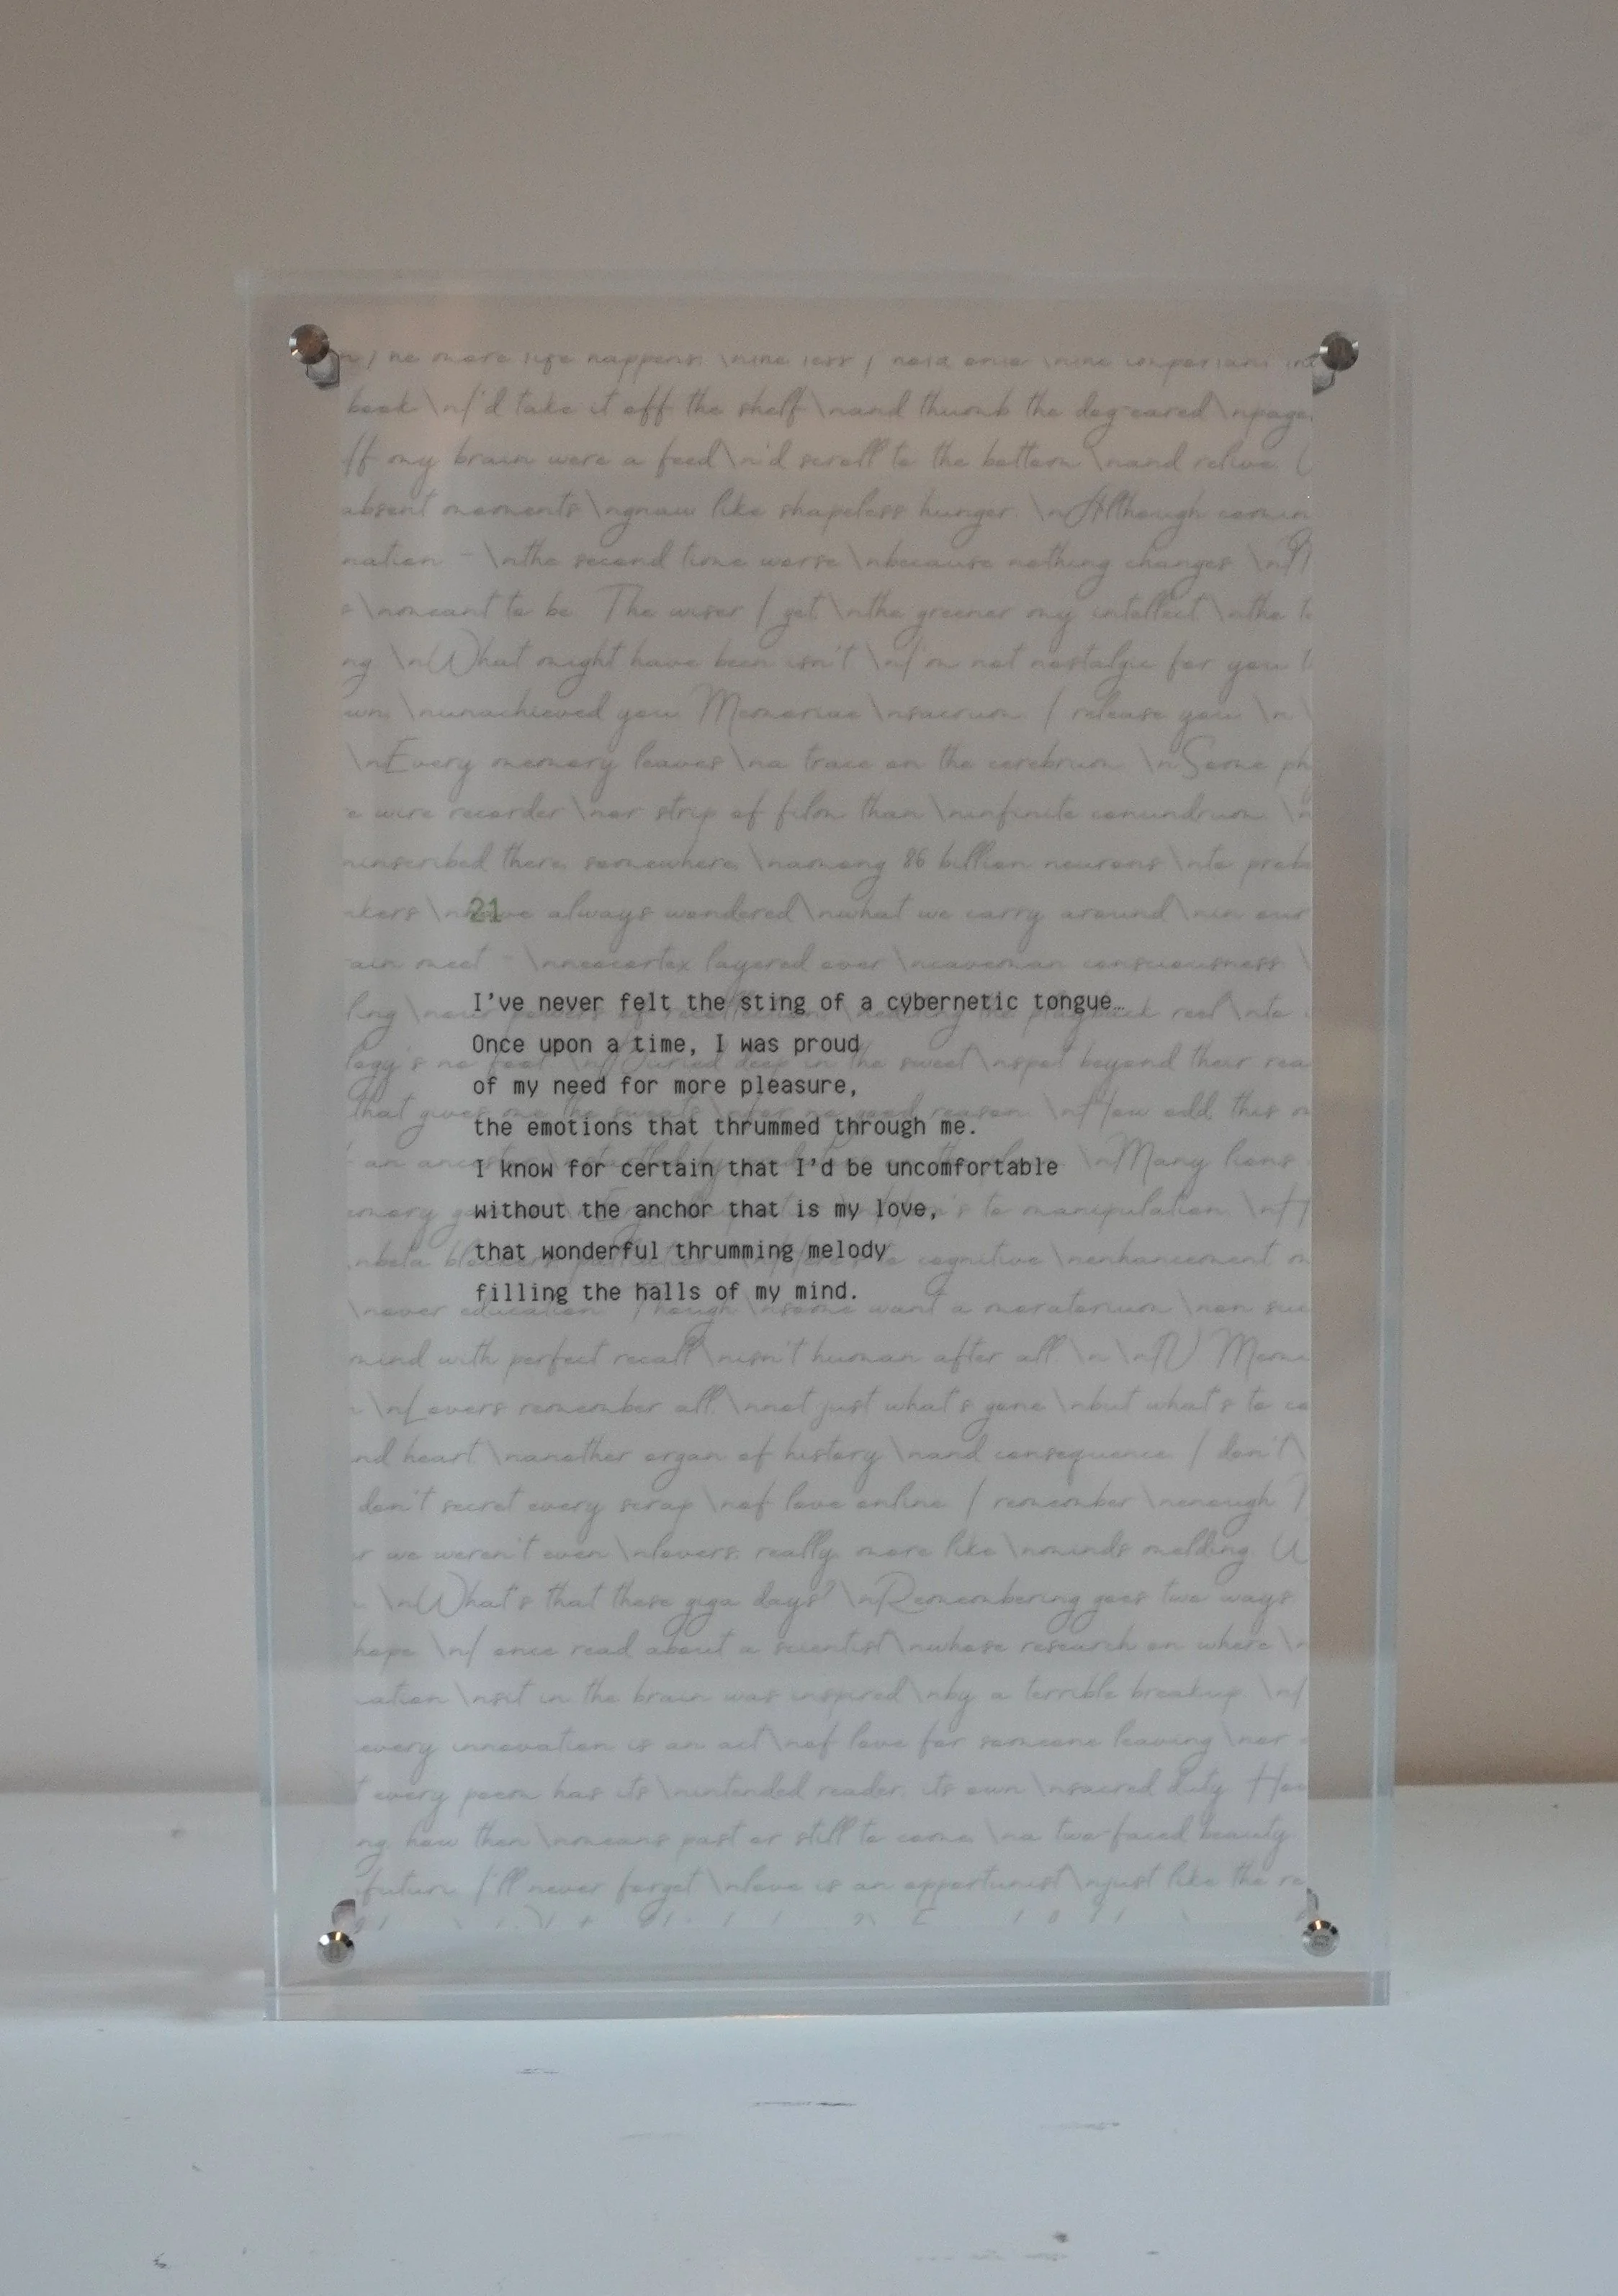 book \nI'd take it off the shelf \nand thumb the dog-eared \npage
If my brain were a feed\nI'd scroll to the bottom \nand relive
absent moments \ngnaw like shapeless hunger. \nAlthough comin
nation - \nthe second time worse \nbecause nothing changes. \n
s \nmeant to be. The wiser I get \nthe greener my intellect \nthe t
ng. \nWhat might have been isn't. \nI'm not nostalgic for you
own, \nunachieved you. Memoriae \nsacrum. I release you. \n \
\nEvery memory leaves \na trace on the cerebrum. \nSome ph
e wire recorder \nor strip of film than \ninfinite conundrum. \n
ninscribed there, somewhere, \namong 86 billion neurons \nto prob
nkers \nhave always wondered \nwhat we carry around \nin our
21
ain meet - \nneocortex layered over \ncaveman consciousness. \
I've never felt the sting of a cybernetic tongue…
ling \nour powers of recollection, \nfeeding the playback reel \nto
Once upon a time, I was proud
logy's no fool. \nBuried deep in the sweet \nspot beyond their rea
of my need for more pleasure,
that gives me the sweats \nfor no good reason. \nHow odd this m
the emotions that thrummed through me.
an ancestor \nstartled by \nMany lions
I know for certain that I'd be uncomfortable
without the anchor that is my love,
emory to manipulation. \n
that wonderful thrumming melody
\nbeta blockers cognitive \nenhancement
filling the halls of my mind.
\nover education. Though \nsome want a moratorium \non suc
mind with perfect recall \nisn't human after all. \n \nIV. Mem
\nLovers remember all, \nnot just what's gone \nbut what's to co
nd heart, \nanother organ of history \nand consequence. I don't \
don't secret every scrap \nof love online. I remember \nenough. I
r we weren't even \nlovers, really, more like \nminds melding. U
\nWhat's that these giga days? \nRemembering goes two ways
hope. \nI once read about a scientist \nwhose research on where \n
ation \nsit in the brain was inspired \nby a terrible breakup. \nI
every innovation is an act \nof love for someone leaving \nor
every poem has its \nintended reader, its own \nsacred duty. How
ng how then \nmeans past or still to come, \na two-faced beauty
future. I'll never forget \nlove is an opportunist \njust like the re